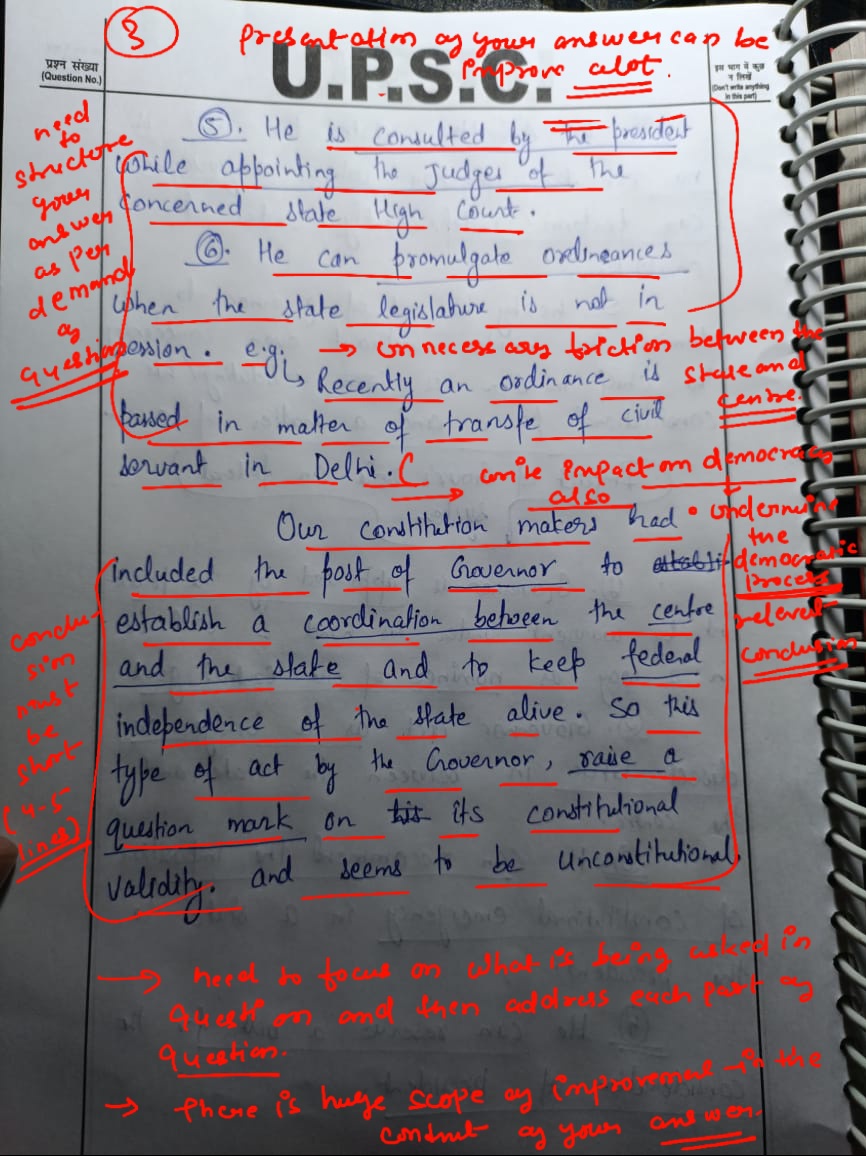 3
Presentation of your answer can be
improve alot.
प्रश्न संख्या
(Question No.)
U.P.S.C.
इस भाग में कुछ
न लिखें
(Don't write anything
in this part)
need
to
structure
your
answer
as per
demand
of
question
(5). He is consulted by the president
while appointing the Judges of the
concerned state High Court.
(6). He can promulgate ordineances
when the state legislature is not in
session. e.g.
→ unnecessary friction between the
state and
centre.
↳ Recently an ordinance is
passed in matter of transfe of civil
servant in Delhi.
write impact on democracy
also
• undermine
the
democratic
process
Our constitution makers had
included the post of Governor to
establish a coordination between the centre
and the state and to keep federal
independence of the state alive. So this
type of act by the Governor, raise a
question mark on its constitutional
validity. and seems to be unconstitutional.
relevent
conclusion
conclu-
sion
must
be
short
(4-5
lines)
→ need to focus on what is being asked in
question and then address each part of
question.
→ There is huge scope of improvement in the
of your answer.